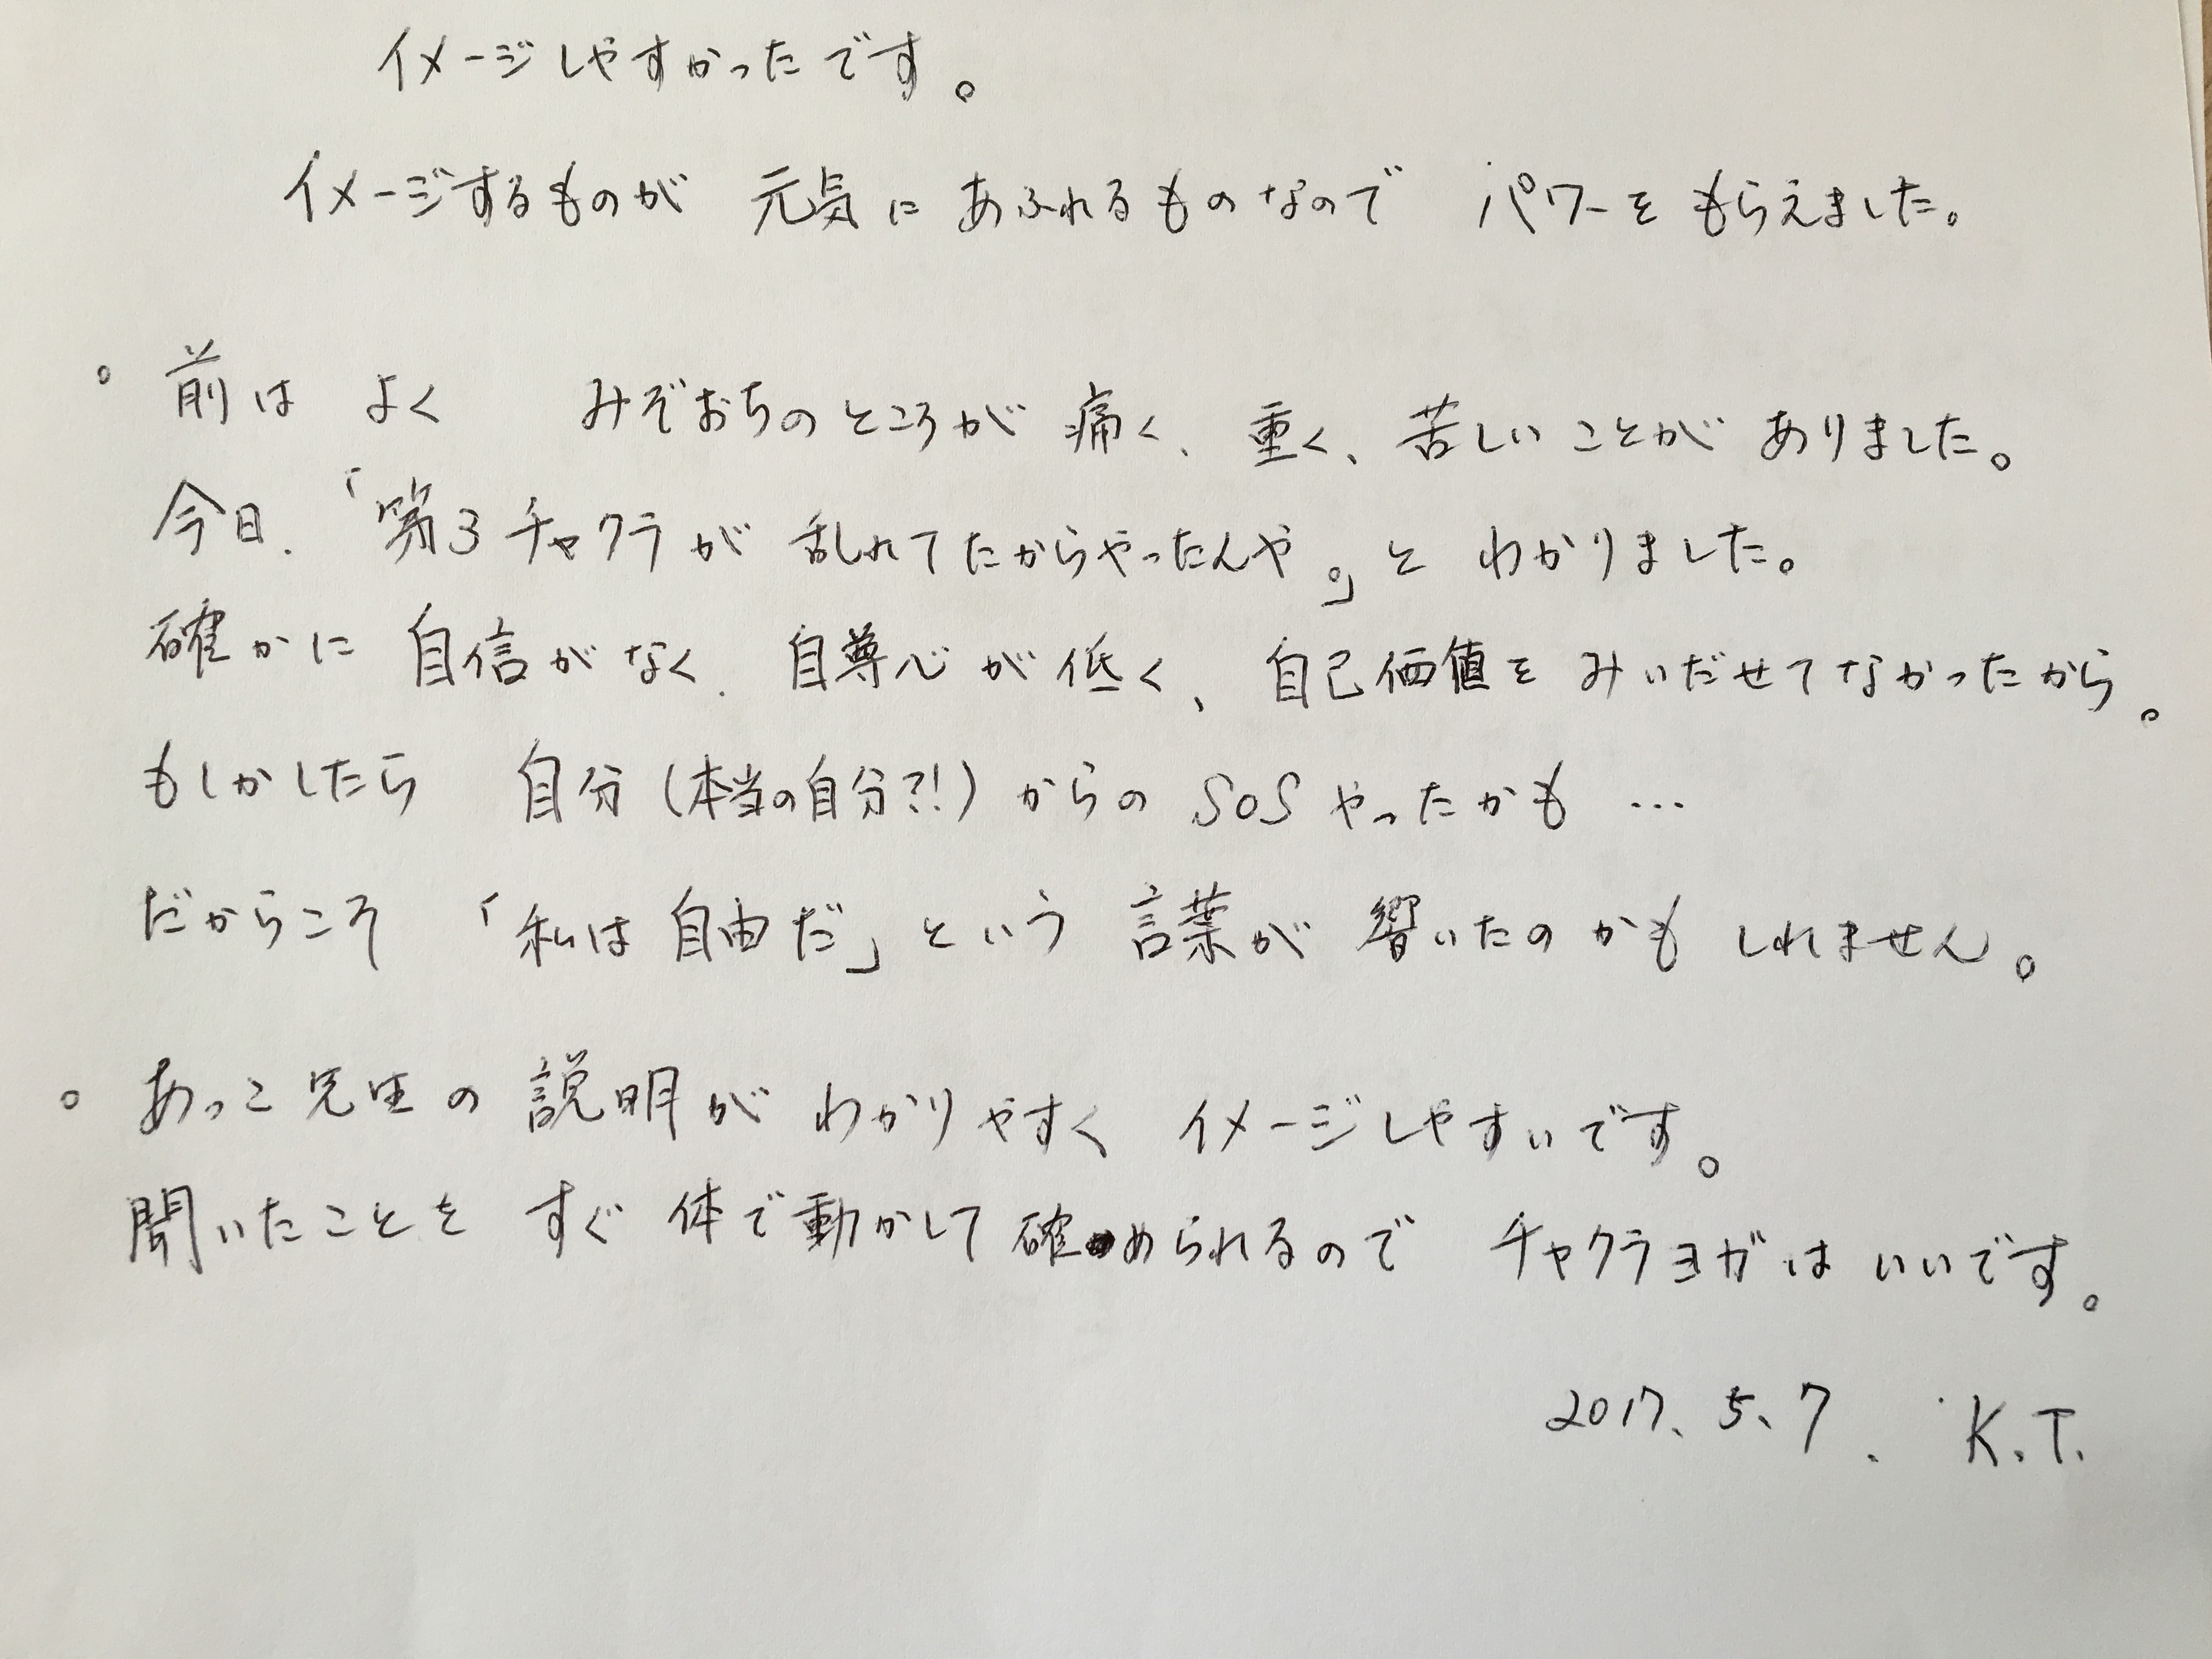 イメージしやすかったです。
イメージするものが 元気に あふれるものなので パワーを もらえました。
。前は よく みぞおちのところが 痛く、重く、苦しいことが ありました。
今日、「第3チャクラが 乱れてたからやったんや。」と わかりました。
確かに 自信がなく、自尊心が低く、自己価値を みいだせてなかったから。
もしかしたら 自分(本当の自分?!)からの SOSやったかも …
だからこそ 「私は自由だ」という 言葉が 響いたのかも しれません。
。あっこ先生の 説明が わかりやすく イメージしやすいです。
聞いたことを すぐ 体で動かして 確められるので チャクラヨガは いいです。
2017. 5. 7. K.T.